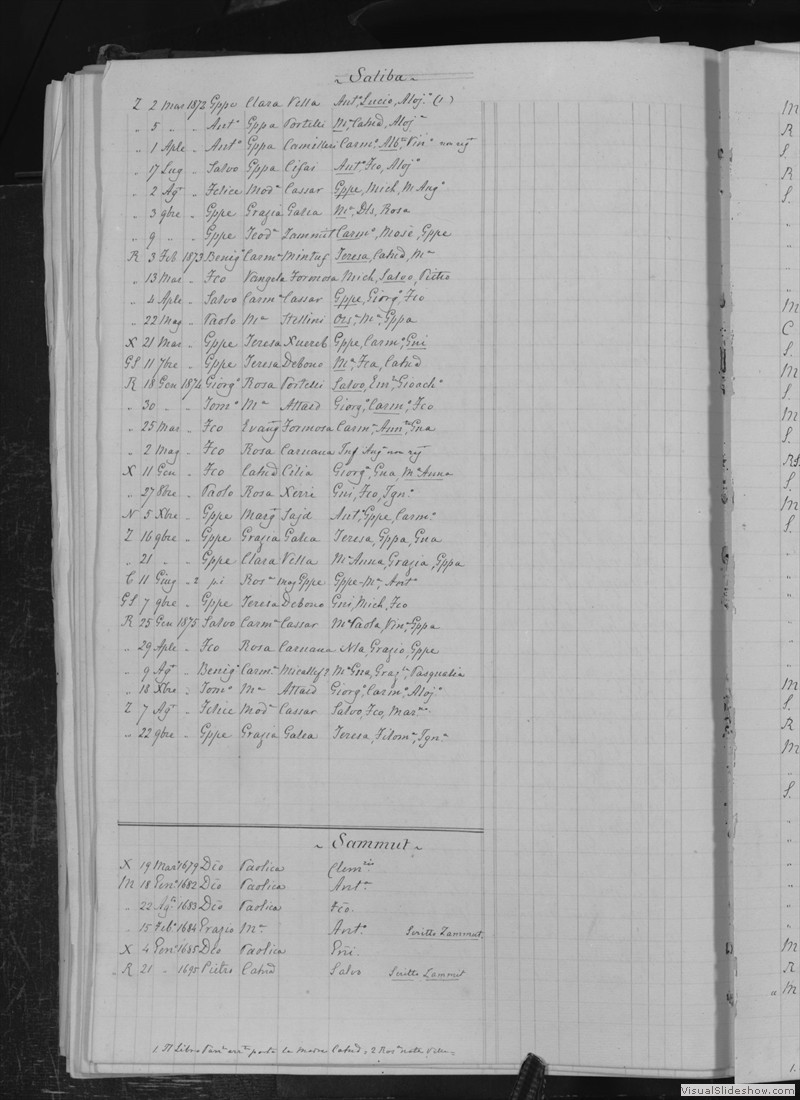 ~ Saliba ~
Z 2 Mar 1872 Gppe Clara Vella Ant° Lucio, Aloj.ª (1)
" 5 " " Antº Gppa Portelli Mª Catnd, Alojª
" 1 Aple " Antº Gppa Camilleri Carmª Albª Vinª
" 17 Lug " Salvo Gppa Cifai Antº, Fco, Alojº
" 2 Agº " Felice Modª Cassar Gppe, Mich, M Angº
" 3 9bre " Gppe Grazia Galea Mª, Dls, Rosa
" 9 " " Gppe Teodª Zammut Carmº, Mosè, Gppe
R 3 Feb 1873 Benigº Carmª Mintuf Teresa, Catnd, Mª
" 13 Mar " Fco Vangela Formosa Mich, Salvo, Pietro
" 4 Aple " Salvo Carmª Cassar Gppe, Giorgº, Fco
" 22 Mag " Paolo Mª Stellini Orsª, Mª, Gppa
X 21 Mar " Gppe Teresa Xuereb Gppe, Carmº, Gni
GS 11 7bre " Gppe Teresa Debono Mª, Fca, Catnd
R 18 Gen 1874 Giorgº Rosa Portelli Salvo, Emª, Gioachº
" 30 " " Tomº Mª Attard Giorgº, Carmº, Fco
" 25 Mar " Fco Evang Formosa Carmª, Annª, Gna
" 2 Mag " Fco Rosa Caruana
X 11 Gen " Fco Catnd Cilia Giorgª, Gna, Mª Anna
" 27 8bre " Paolo Rosa Xerri Gni, Fco, Ignº
N 5 Xbre " Gppe Marg Sajd Antº, Gppe, Carmº
Z 16 9bre " Gppe Grazia Galea Teresa, Gppa, Gna
" 21 " " Gppe Clara Vella Mª Anna, Grazia, Gppa
C 11 Giug " 2 p.i Rosª mag Gppe Gppe-Mª Antª
GS 7 9bre " Gppe Teresa Debono Gni, Mich, Fco
R 25 Gen 1875 Salvo Carmª Cassar Mª Paola, Vinª, Gppa
" 29 Aple " Fco Rosa Caruana Nla, Grazio, Gppe
" 9 Agº " Benigº Carmª Micallef? Mª Gna, Grazª, Pasqualia
" 18 Xbre " Tomº Mª Attard Giorgº, Carmº, Alojº
Z 7 Agº " Felice Modª Cassar Salvo, Fco, Marª
" 22 9bre " Gppe Grazia Galea Teresa, Filomª, Ignª
~ Sammut ~
X 19 Marº 1679 Dẽo Paolica
M 18 Genº 1682 Dẽo Paolica Antª
" 22 Agº 1683 Dẽo Paolica Fco.
" 15 Febº 1684 Grazio Mª Antº Scritto Zammut
X 4 Genº 1685 Dẽo Paolica Gñi.
" R 21 " 1695 Pietro Catnd Salvo Scritto Zammut
1 Il Libro porta la Madre Catnd, 2 Rosª Vella
VisualSlideshow.com